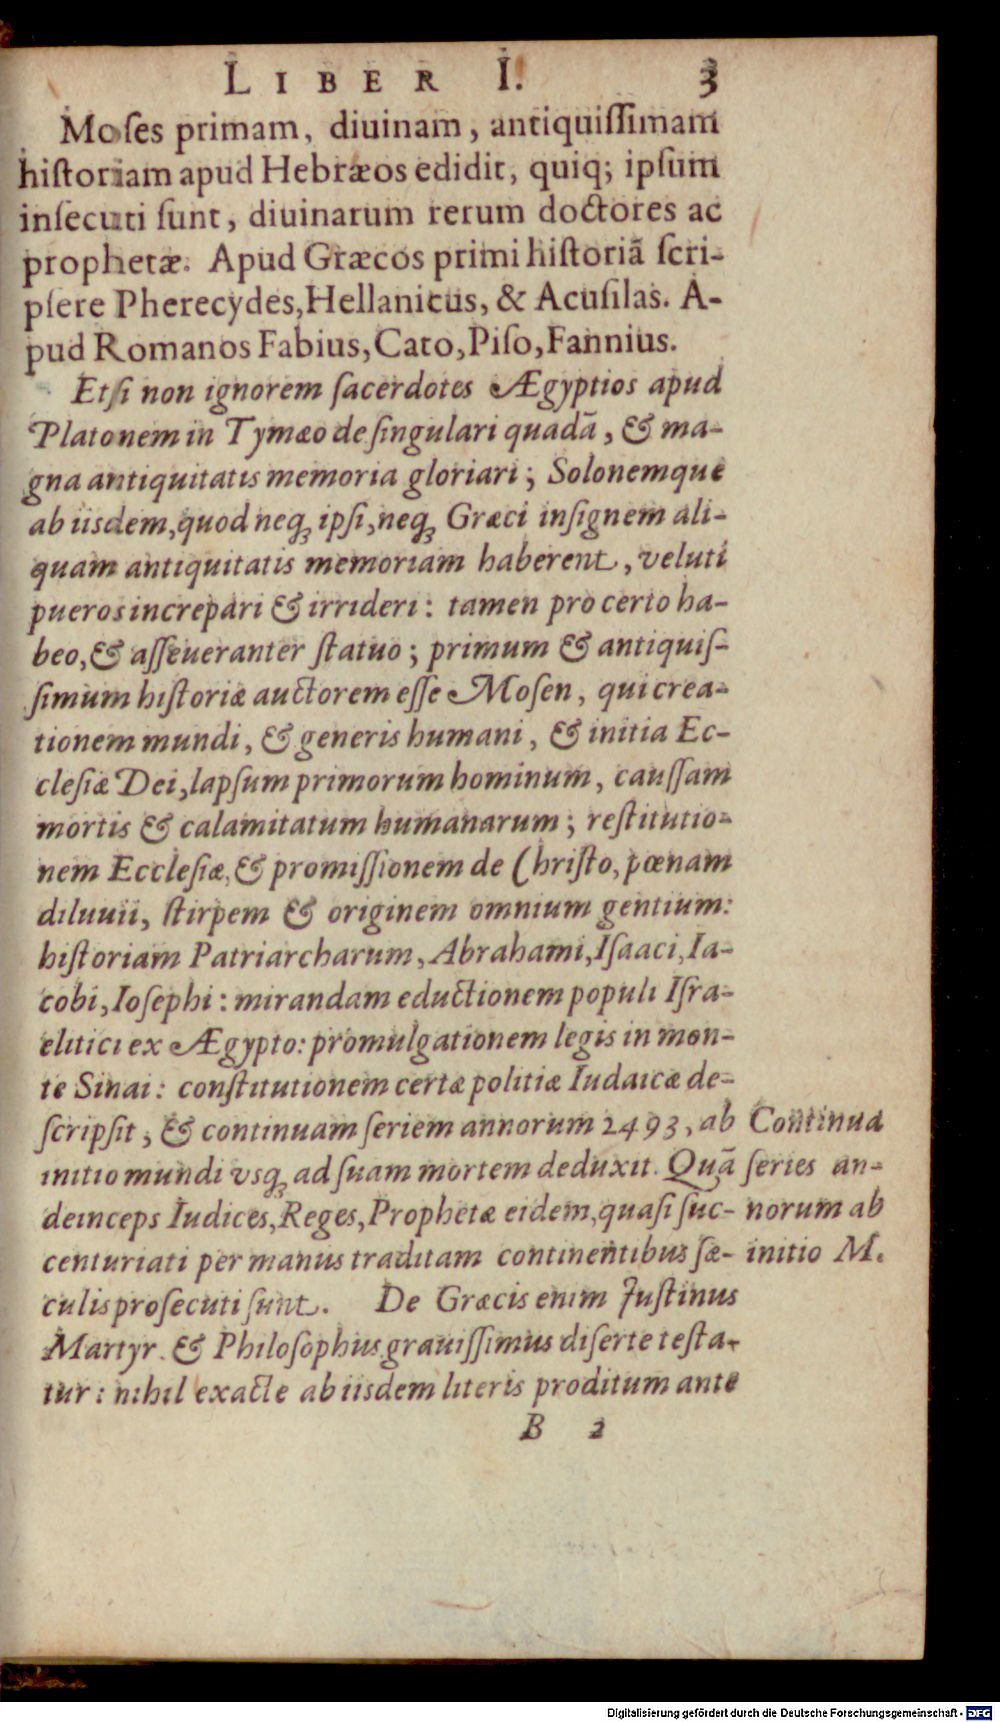 LIBER I. 3
Moſes primam, diuinam, antiquiſſimam
hiſtoriam apud Hebræos edidit, quiq; ipſum
inſecuti ſunt, diuinarum rerum doctores ac
prophetæ. Apud Græcos primi hiſtoriã ſcri-
pſere Pherecydes, Hellanicus, & Acuſilas. A-
pud Romanos Fabius, Cato, Piſo, Fannius.
Etſi non ignorem ſacerdotes Ægyptios apud
Platonem in Tymæo de ſingulari quadã, & ma-
gna antiquitatis memoria gloriari; Solonemque
ab iisdem, quod neq́; ipſi, neq́; Græci inſignem ali-
quam antiquitatis memoriam haberent, veluti
pueros increpari & irrideri: tamen pro certo ha-
beo, & aſſeueranter ſtatuo; primum & antiquiſ-
ſimum hiſtoriæ auctorem eſſe Moſen, qui crea-
tionem mundi, & generis humani, & initia Ec-
cleſiæ Dei, lapſum primorum hominum, cauſſam
mortis & calamitatum humanarum; reſtitutio-
nem Eccleſiæ, & promiſſionem de Chriſto, pœnam
diluuii, ſtirpem & originem omnium gentium:
hiſtoriam Patriarcharum, Abrahami, Iſaaci, Ia-
cobi, Ioſephi: mirandam eductionem populi Iſra-
elitici ex Ægypto: promulgationem legis in mon-
te Sinai: conſtitutionem certæ politiæ Iudaicæ de-
ſcripſit, & continuam ſeriem annorum 2493, ab
initio mundi vsq; ad ſuam mortem deduxit. Quã
deinceps Iudices, Reges, Prophetæ eidem, quaſi ſuc-
centuriati per manus traditam continentibus ſæ-
culis proſecuti ſunt. De Græcis enim Juſtinus
Martyr & Philoſophus grauiſſimus diſerte teſta-
tur: nihil exacte ab iisdem literis proditum ante
Continua
series an-
norum ab
initio M.
B 2
Digitalisierung gefördert durch die Deutsche Forschungsgemeinschaft - DFG